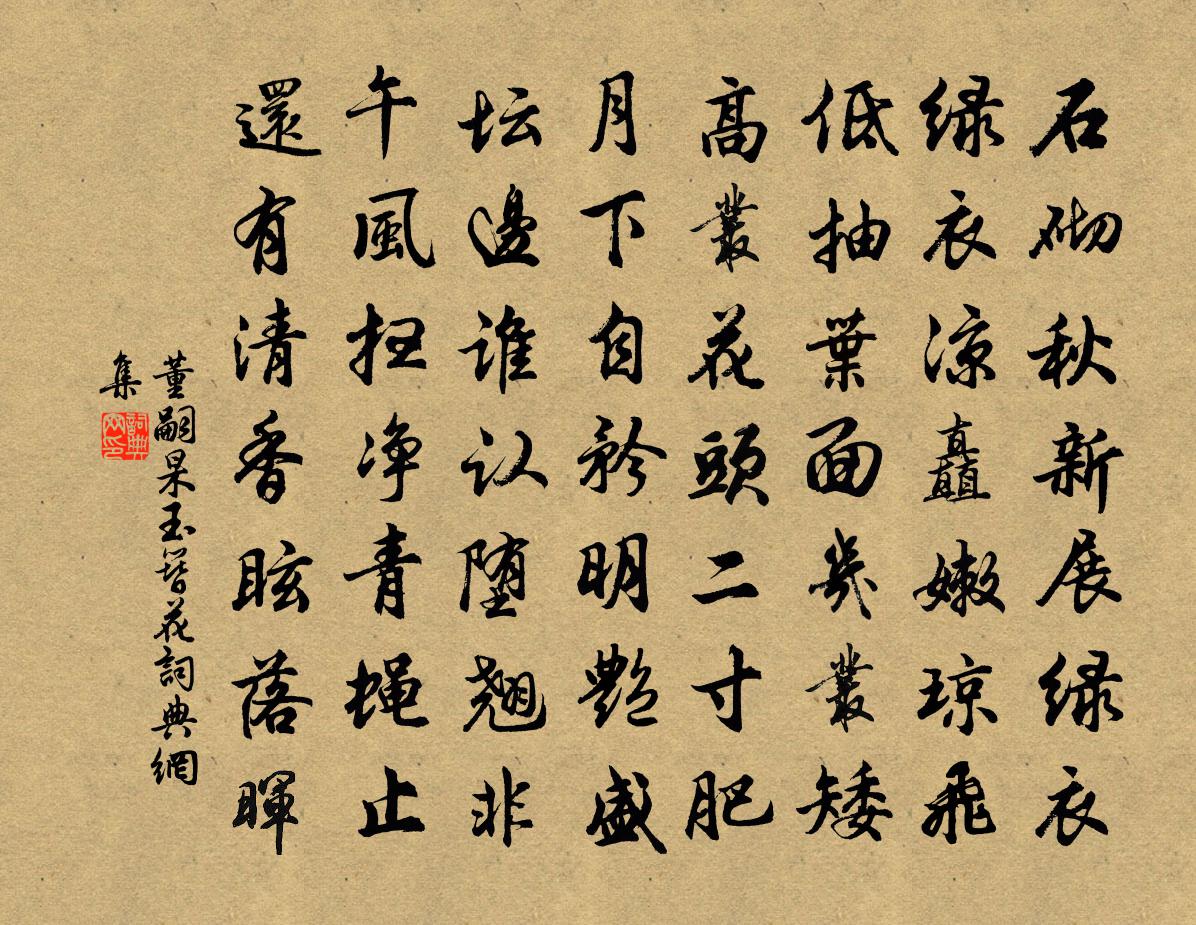 石砌秋新展绿衣
绿衣凉矗嫩琼飛
低抽葉面幾叢矮
高叢花頭二寸肥
月下自矜明艷盛
坛邊谁认堕翘非
午風扫净青蝇止
還有清香眩落暉
董嗣杲玉簪花詞典網
集
詞典网印